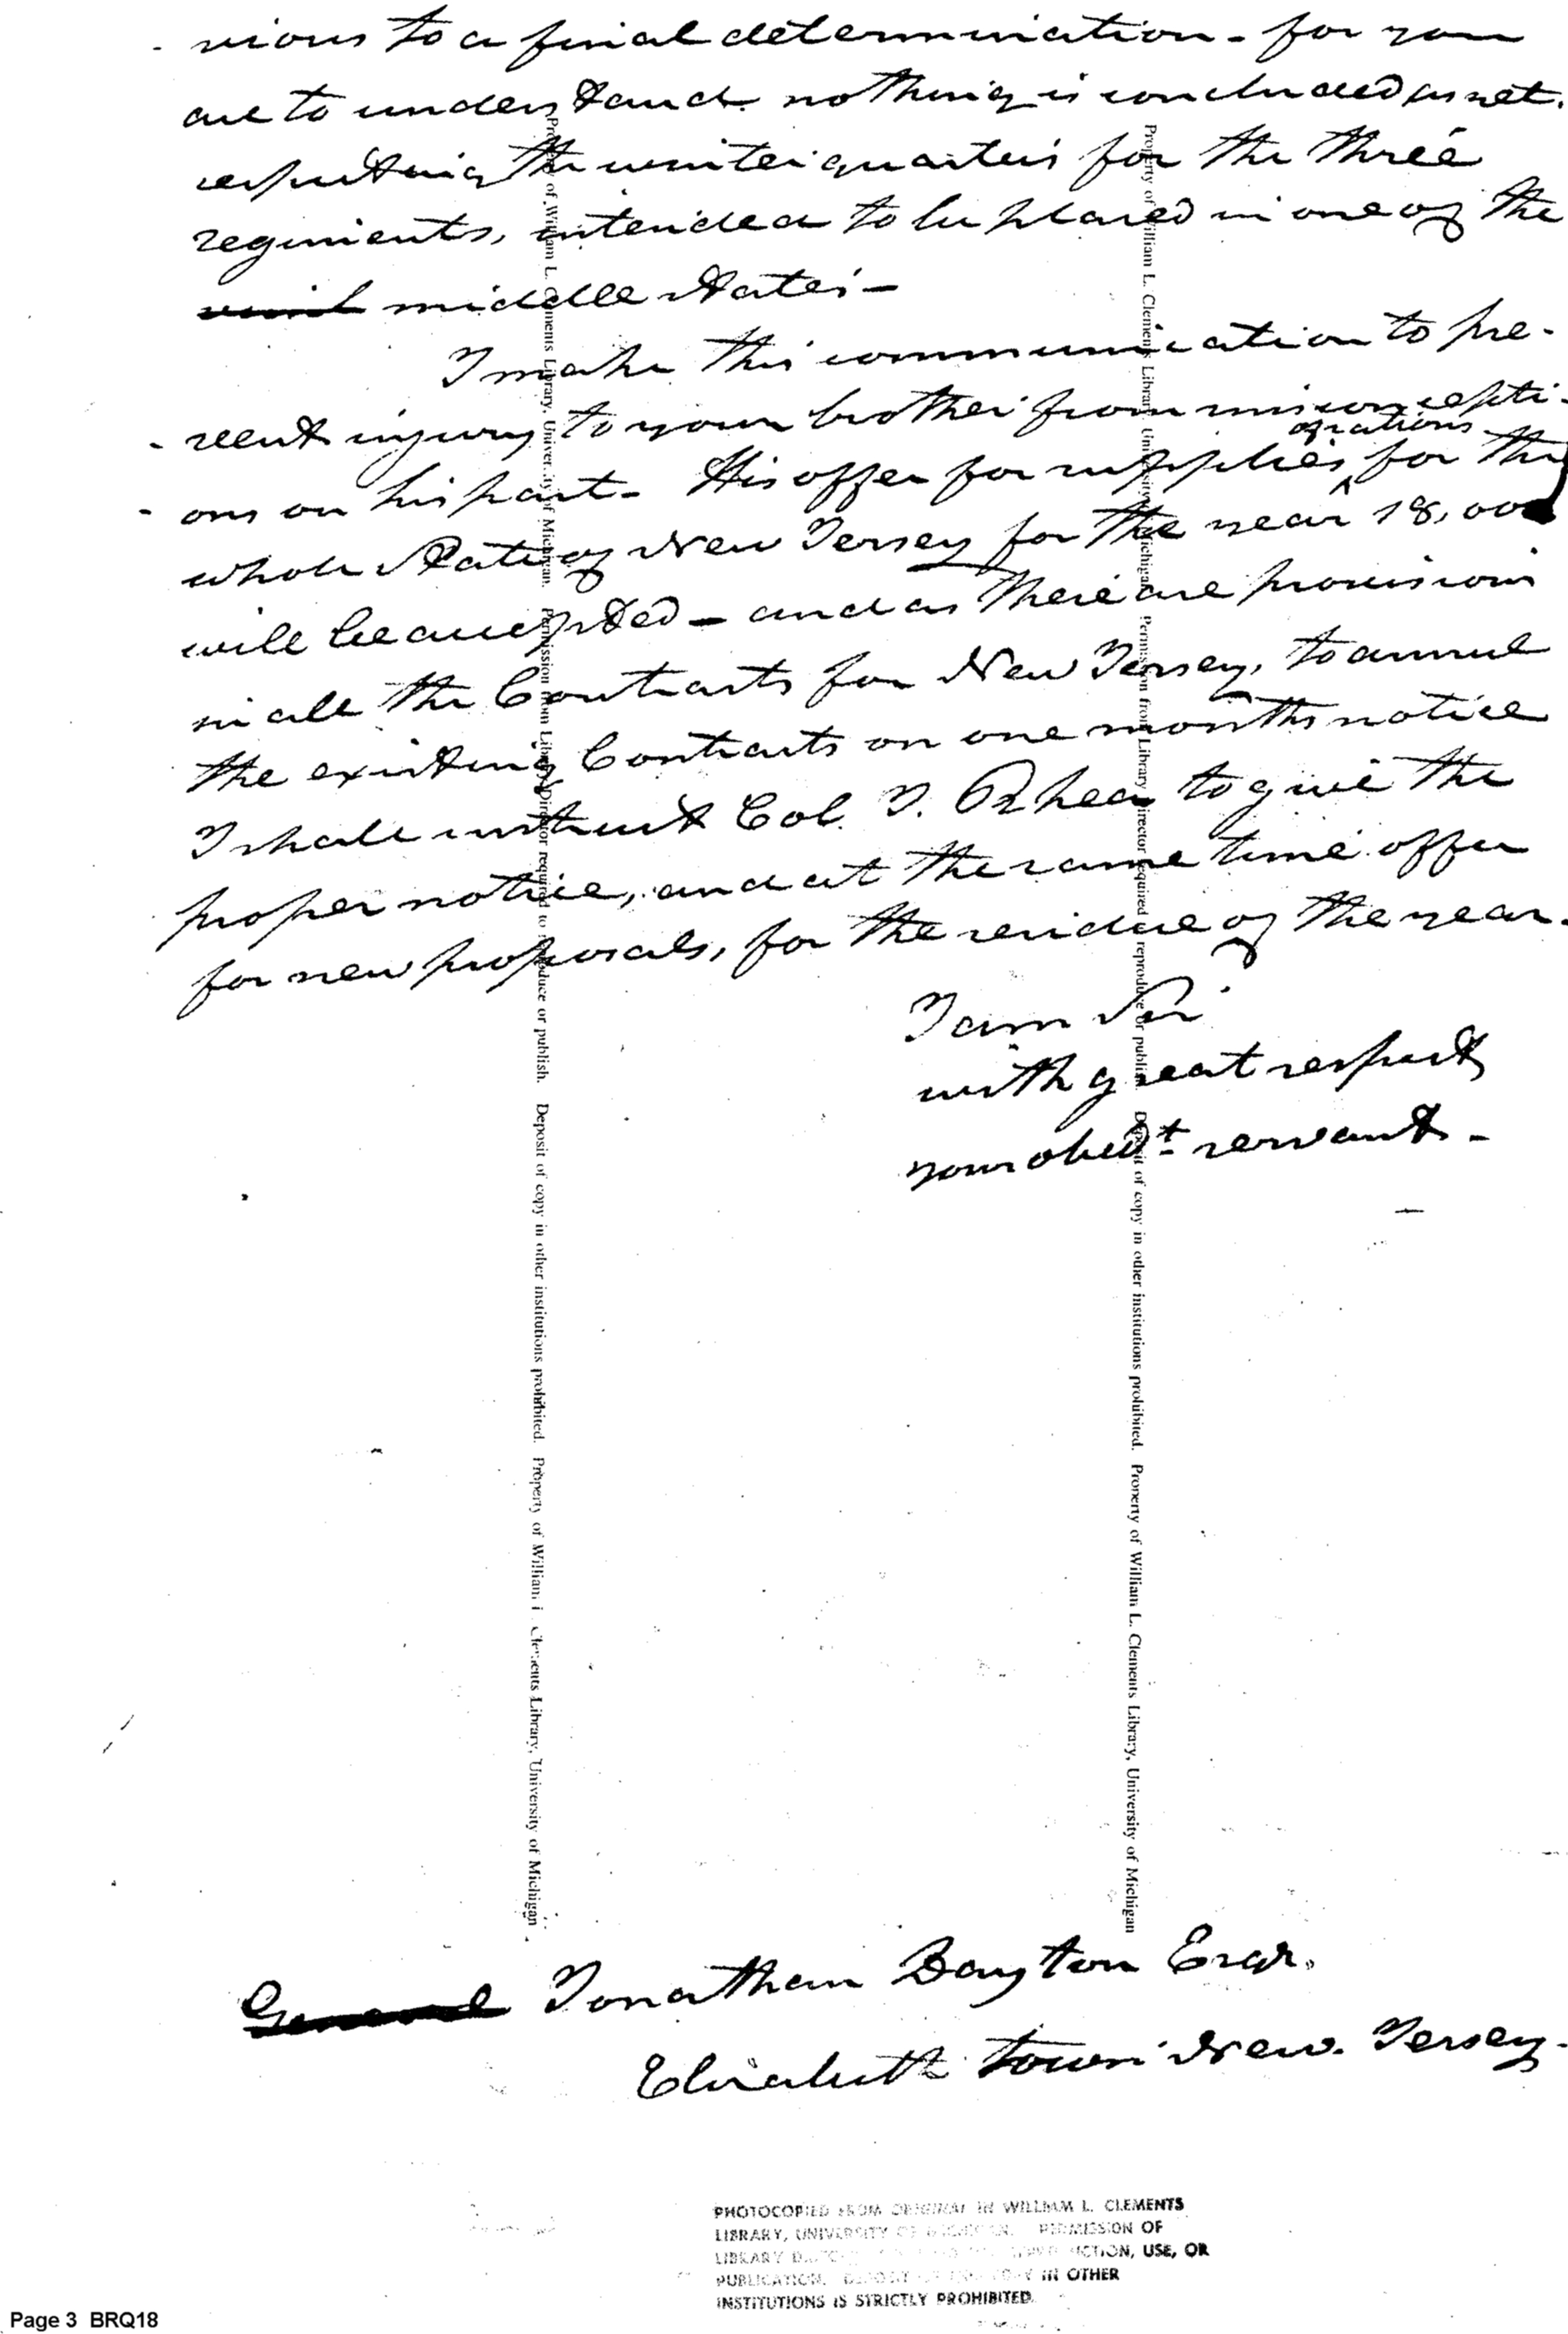 - vious to a final determination - for you
are to understand nothing is concluded as yet.
respecting the winter quarters for the three
regiments, intended to be placed in one of the
middle States -
I make this communication to pre-
- vent injury to your brother from misconcepti-
- ons on his part - His offer for supplies of rations for the
whole State of New Jersey for the year 1800
will be accepted - and as there are provisions
in all the Contracts for New Jersey, to annul
the existing Contracts on one months notice
I shall instruct Col. J. Rhea to give the
proper notice, and at the same time offer
for new proposals, for the residue of the year.
I am Sir
with great respect
your obedt servant -
General Jonathan Dayton Esqr.
Elizabeth town New Jersey.
Property of William L. Clements Library, University of Michigan. Permission from Library Director required to reproduce or publish. Deposit of copy in other institutions prohibited. Property of William L. Clements Library, University of Michigan
Property of William L. Clements Library, University of Michigan. Permission from Library Director required to reproduce or publish. Deposit of copy in other institutions prohibited. Property of William L. Clements Library, University of Michigan
PHOTOCOPIED FROM ORIGINAL IN WILLIAM L. CLEMENTS
LIBRARY, UNIVERSITY OF MICHIGAN. PERMISSION OF
LIBRARY USE, OR
PUBLICATION. DEPOSIT OF THIS COPY IN OTHER
INSTITUTIONS IS STRICTLY PROHIBITED.
Page 3 BRQ18